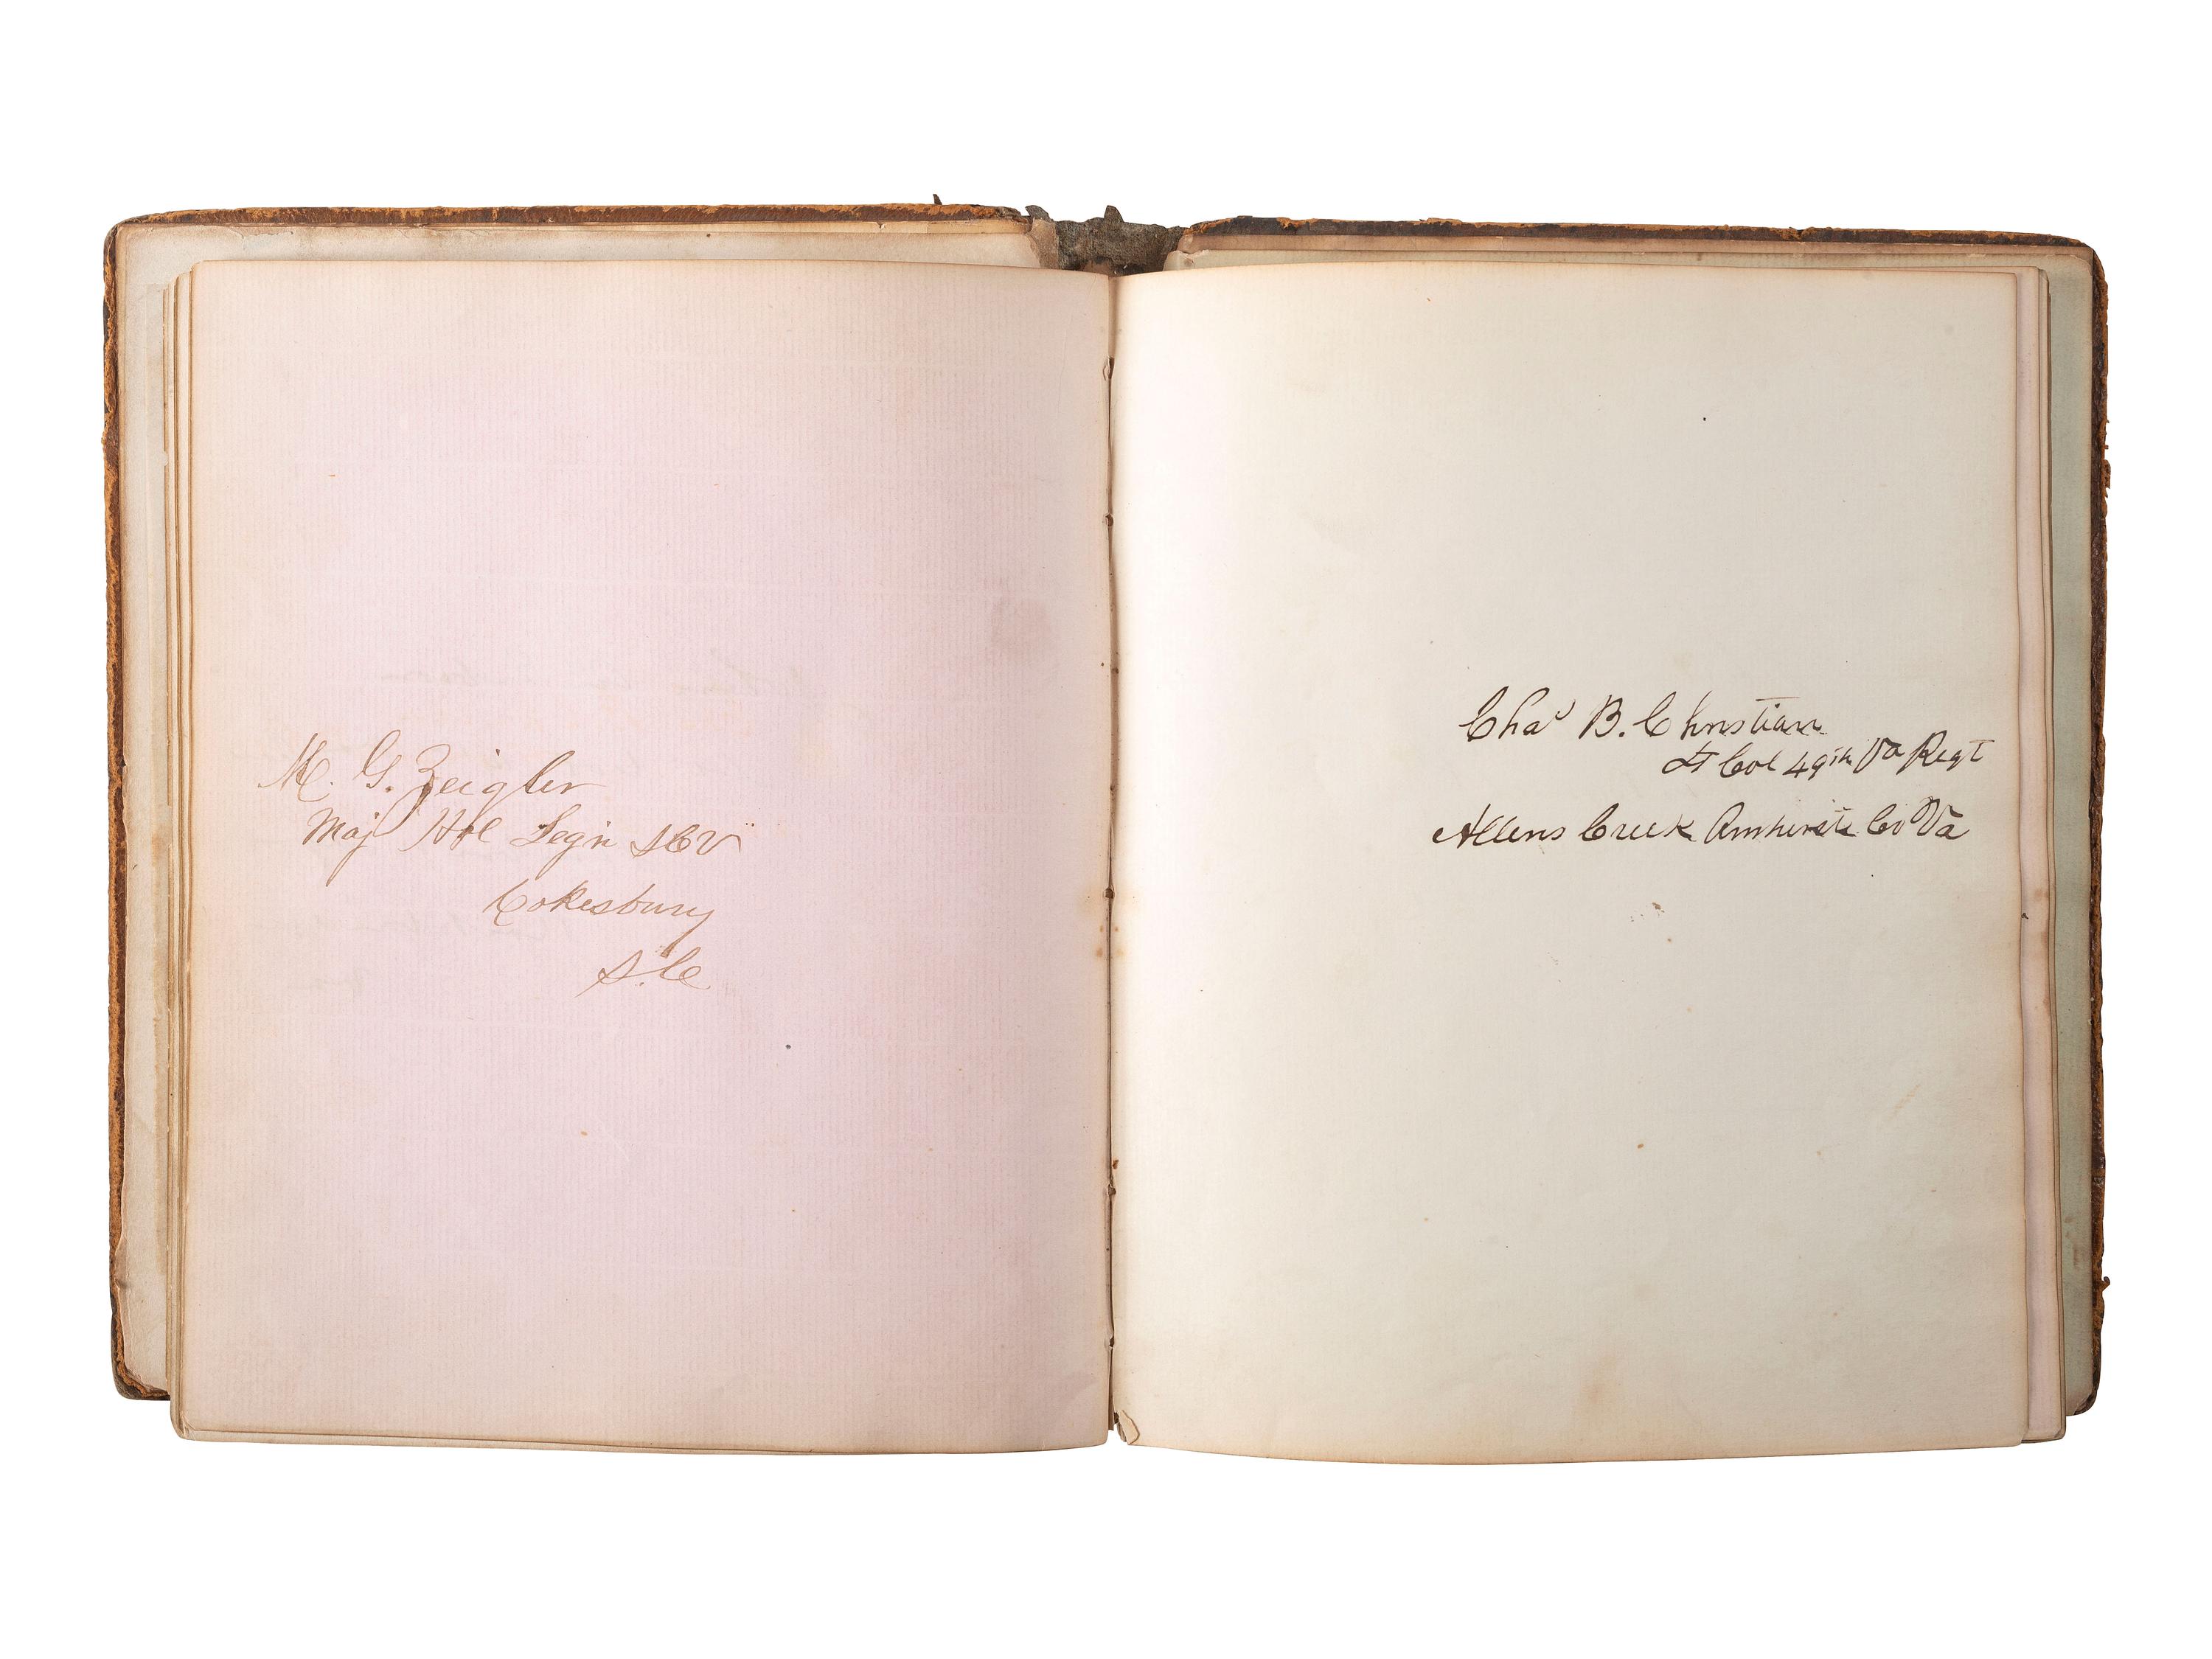 M. G. Zeigler
Maj Hol Legn SCV
Cokesbury
S.C
Chas B. Christian
Lt Col 49th Va Regt
Allens Creek Amherst Co Va